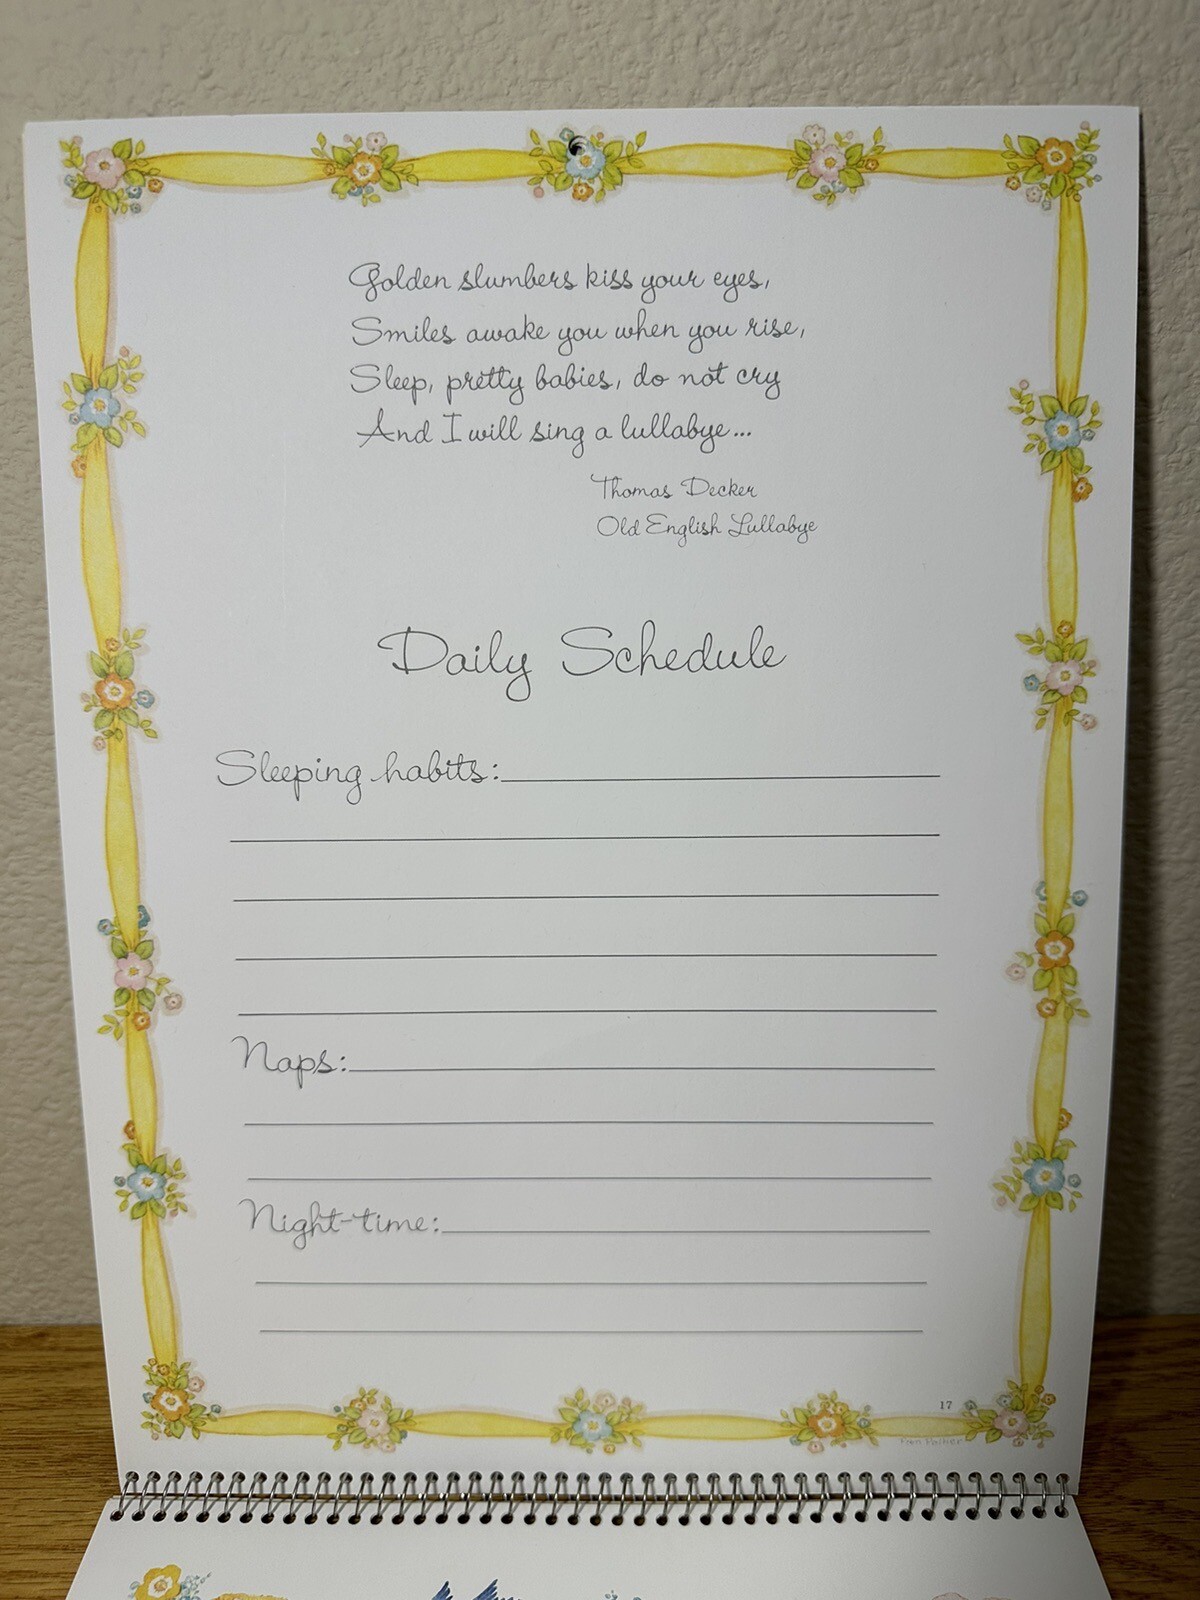 Golden slumbers kiss your eyes,
Smiles awake you when you rise,
Sleep, pretty babies, do not cry
And I will sing a lullabye...
Thomas Decker
Old English Lullabye
Daily Schedule
Sleeping habits:
Naps:
Night-time:
17